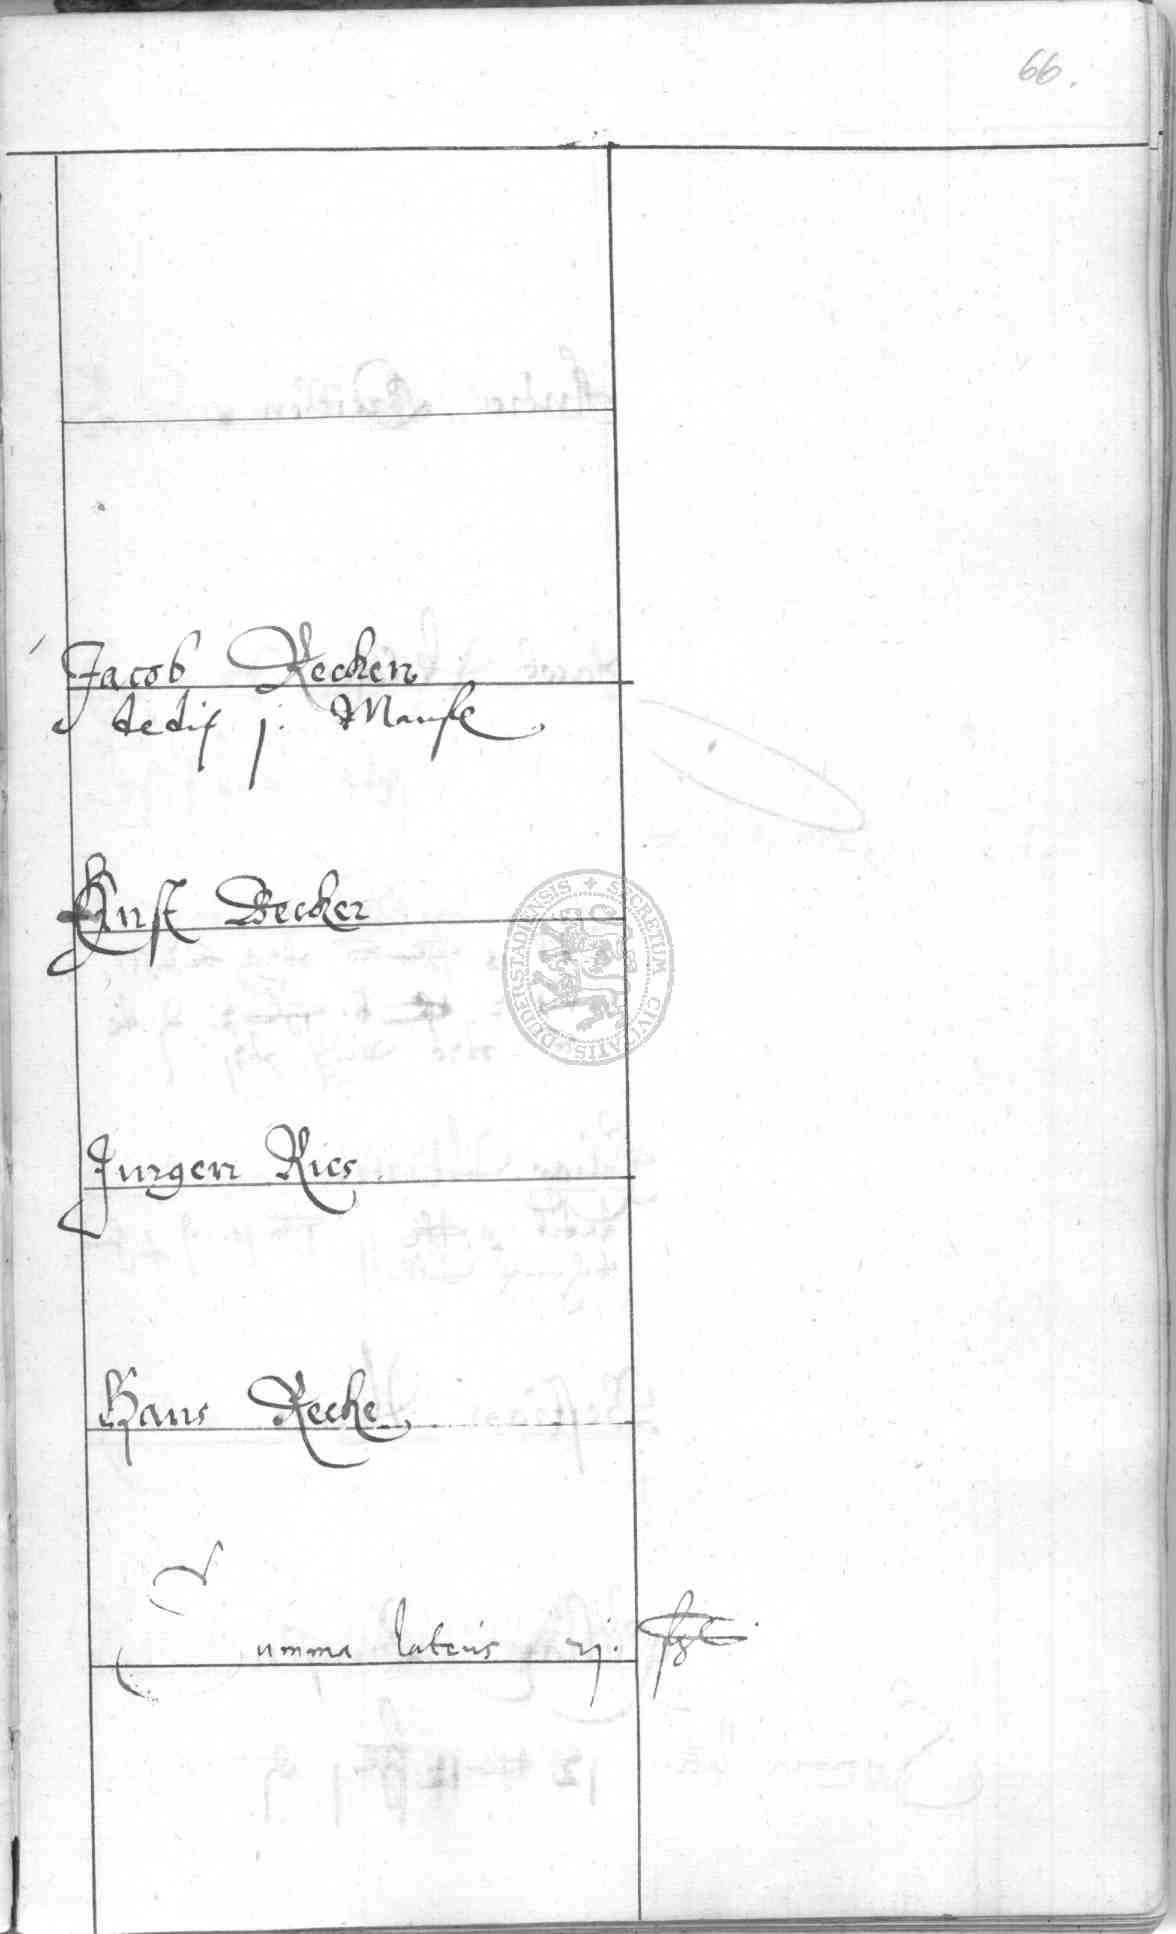 66.
Jacob Recken
dedit j. Manse
Enst Becker
Jurgen Ries
Hans Recke
Summa lateris
SECRETUM CIVITATIS DUDERSTADIENSIS